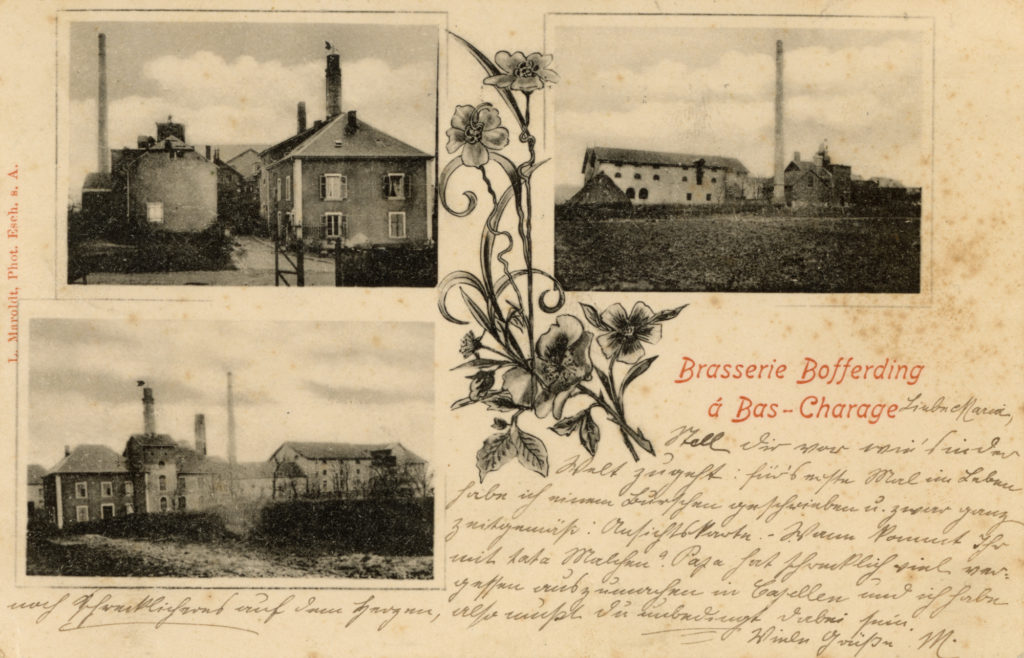 L. Maroldt, Phot. Esch. s. A.
Brasserie Bofferding
á Bas-Charage
Liebe Maria,
Stell dir vor wie's in der
Welt zugeht: für's erste Mal im Leben
habe ich einem Burschen geschrieben u. zwar ganz
zeitgemäß: Ansichtskarte. Wann kommt Ihr
mit tata Malchen? Papa hat schrecklich viel ver-
gessen auszumachen in Capellen und ich habe
noch schrecklicheres auf dem Herzen, also mußt du unbedingt dabei sein.
Viele Grüße M.